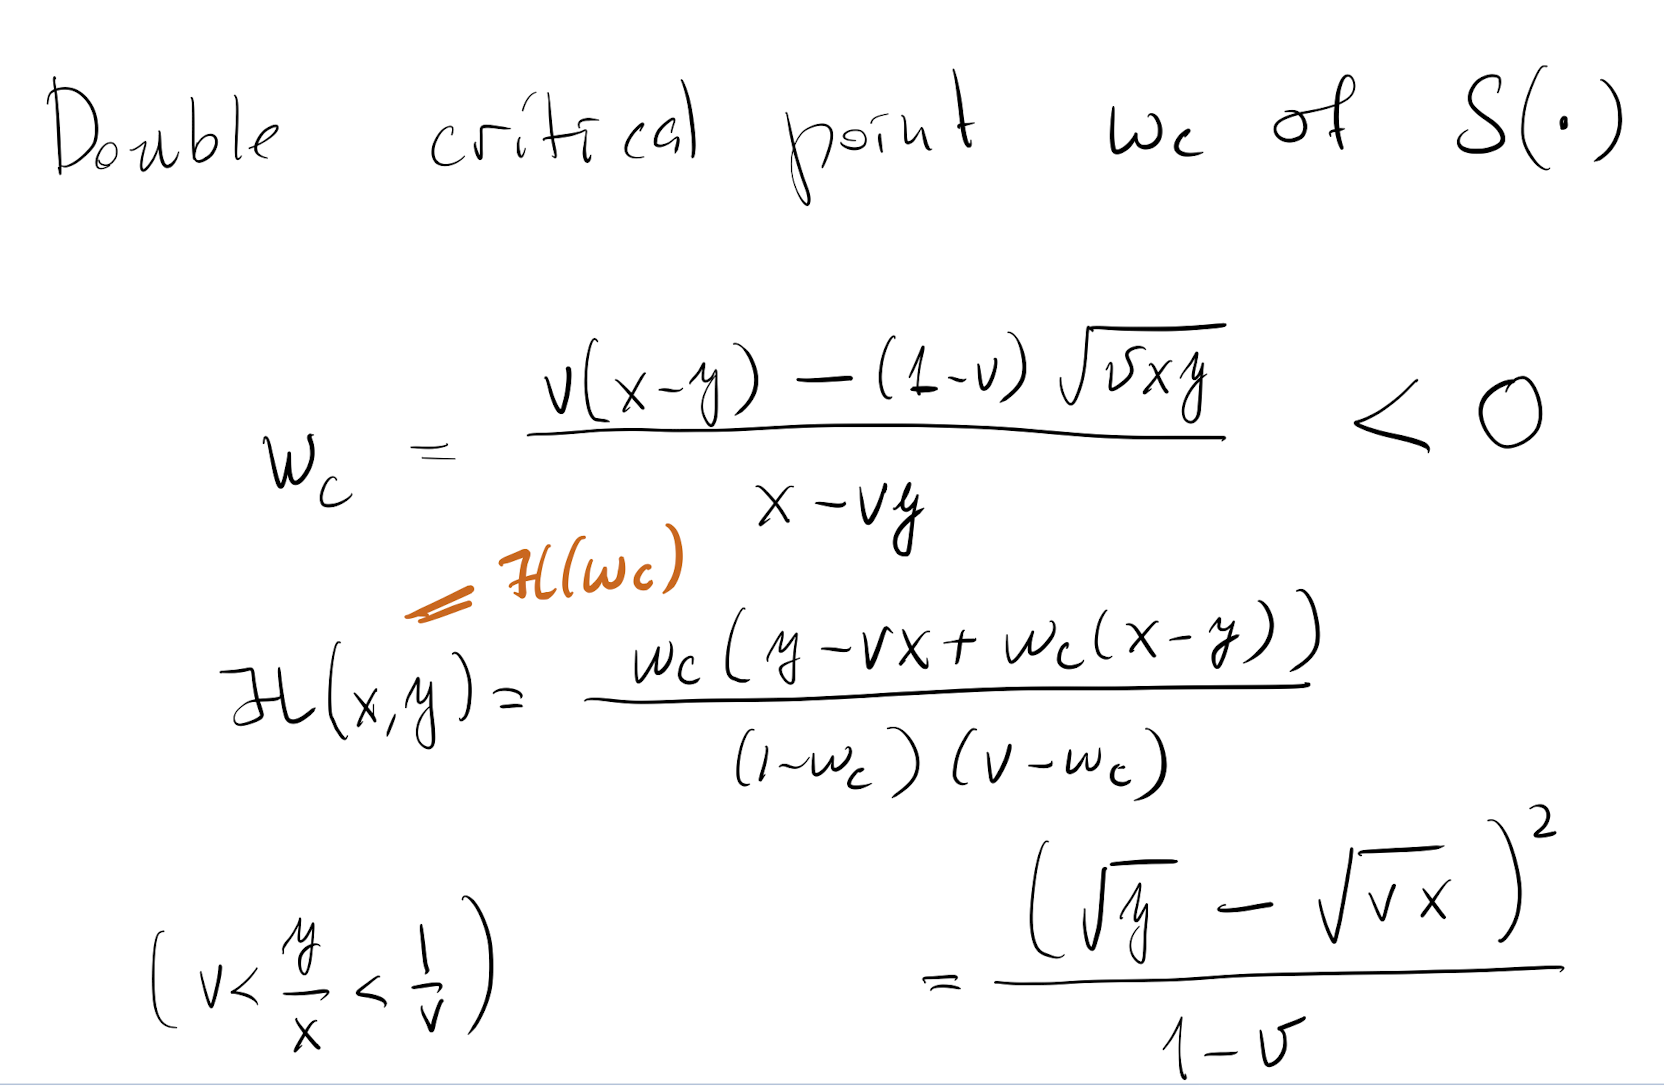 Double critical point wc of S(·)
w_c = \frac{v(x-y) - (1-v)\sqrt{vxy}}{x-vy} < 0
= ℋ(w_c)
ℋ(x,y) = \frac{w_c(y-vx+w_c(x-y))}{(1-w_c)(v-w_c)}
(v < \frac{y}{x} < \frac{1}{v}) = \frac{(\sqrt{y} - \sqrt{vx})^2}{1-v}